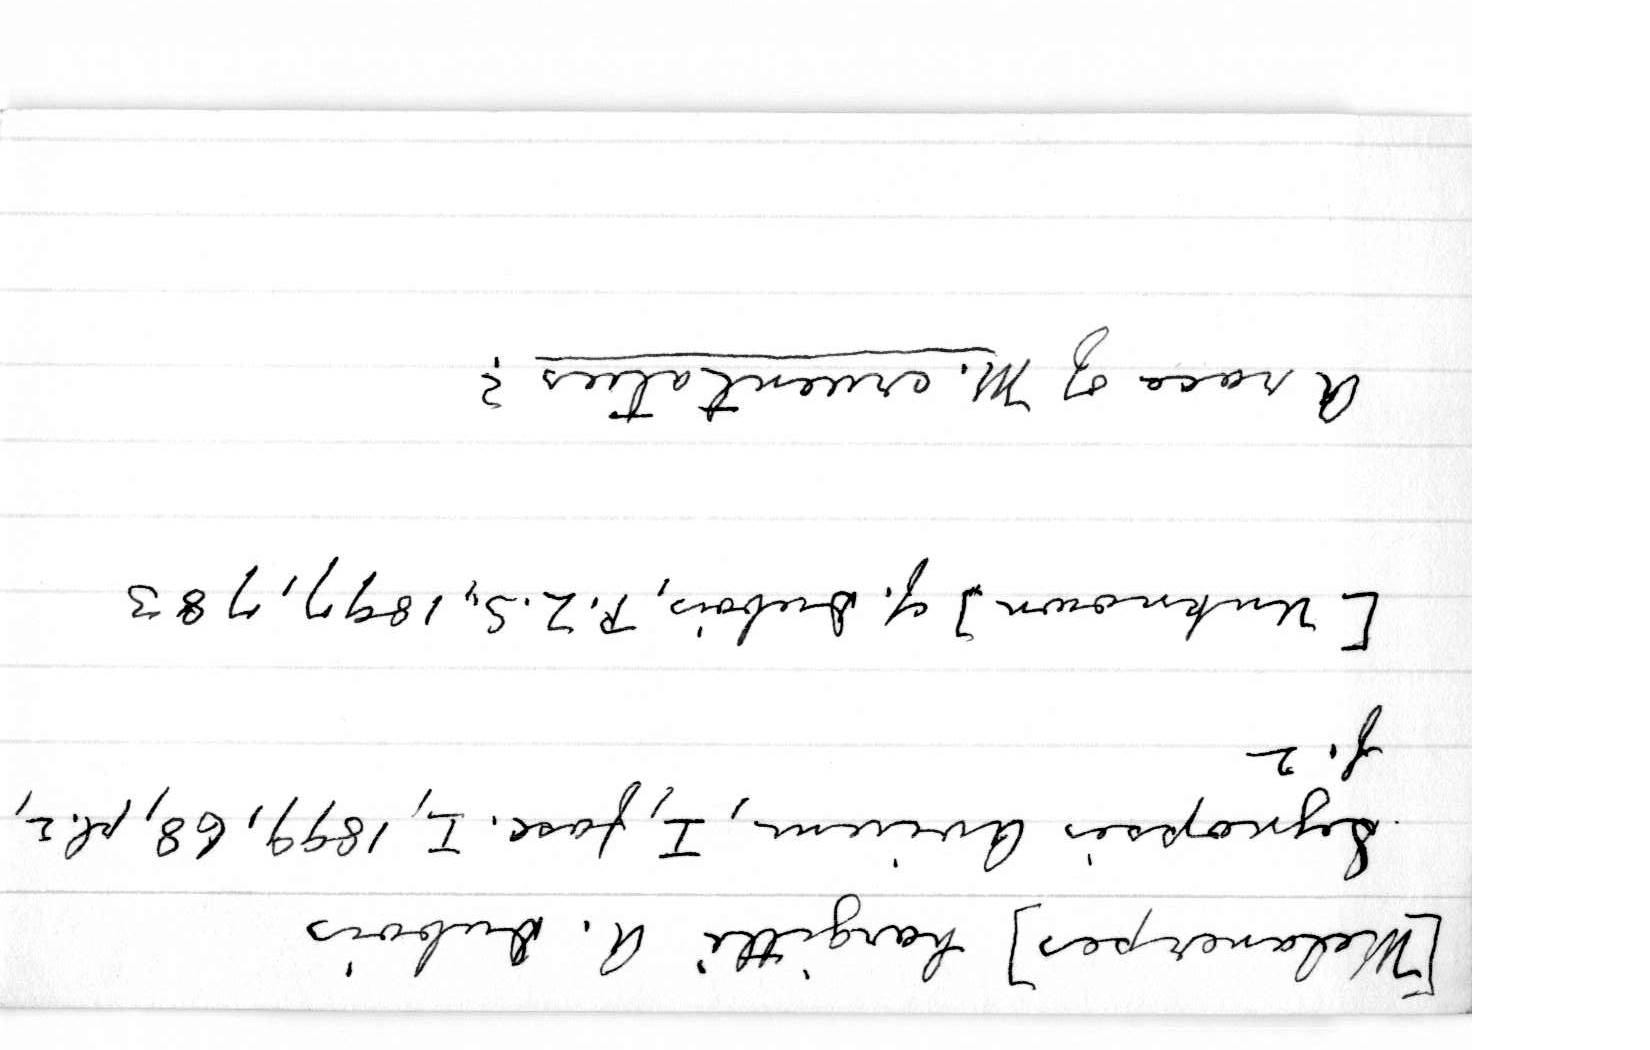 [Melanerpes] hargitti A. Dubois
Synopsis Avium, I, fasc. I, 1899, 68, pl. 2,
f. 2
[Unknown] cf. Dubois, P.Z.S., 1897, 783
A race of M. cruentatus?